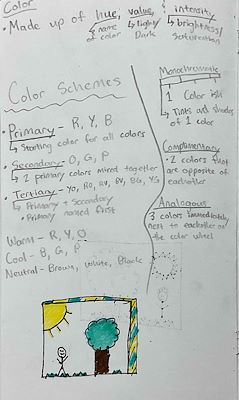 Color
• Made up of hue, value, intensity
↳ name of color
↳ Light/Dark
↳ brightness/saturation
Color Schemes
• Primary - R, Y, B
↳ Starting color for all colors
• Secondary - O, G, P
↳ 2 primary colors mixed together
• Tertiary - YO, RO, RV, BV, BG, YG
↳ Primary + Secondary
• Primary named first
Warm - R, Y, O
Cool - B, G, P
Neutral - Brown, White, Black
Monochromatic
1 Color
↳ Tints and shades of 1 color
Complimentary
• 2 colors that are opposite of eachother
Analogous
3 colors immediately next to eachother on the color wheel